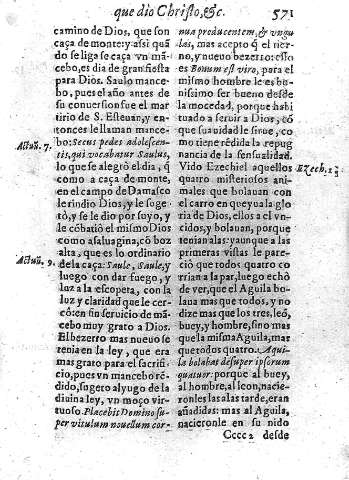 que dio Christo, &c. 571
camino de Dios, que son
caça de monte: y assi quã
do se liga se caça vn mã
cebo, es dia de gran fiesta
para Dios. Saulo mance-
bo, pues el año antes de
su conuersion fue el mar
tirio de S. Esteuan, y en
tonces le llaman mance-
bo: Secus pedes adolescen-
Actuũ. 7.
tis, qui vocabatur Saulus,
lo que se alegrò el dia, q̃
como a caça de monte,
en el campo de Damasco
le rindio Dios, y le suge-
tò, y se le dio por suyo, y
le cõbatiò el mismo Dios
como a salua gina, cõ boz
alta, que es lo ordinario
Actuũ. 9.
de la caça: Saule, Saule, y
luego con dar fuego, y
luz a la escopeta, con la
luz y claridad que le cer-
cò: en fin seruicio de mã-
cebo muy grato a Dios.
El bezerro mas nueuo se
tenia en la ley, que era
mas grato para el sacrifi-
cio, pues vn mancebo rẽ-
dido, sugeto al yugo de la
diuina ley, vn moço vir-
tuoso. Placebit Domino su-
per vitulum nouellum cor-
nua producentem, & vngu-
las, mas acepto q̃ el tier-
no, y nueuo bezerro: esso
es Bonum est viro, para el
mismo hombre le es bo-
nissimo ser bueno desde
la mocedad, porque habi
tuado a seruir a Dios, cõ
que suauidad le sirue, co
mo tiene rẽdida la repug
nancia de la sensualidad.
Vido Ezechiel aquellos
Ezech. 1
quatro misteriosos ani-
males que bolauan con
el carro en que yua la glo
ria de Dios, ellos a el vn-
cidos, y bolauan, porque
tenian alas: y aunque a las
primeras vistas le pare-
ciò que todos quatro co
rrian a la par, luego echò
de ver, que el Aguila bo-
laua mas que todos, y no
dize mas que los tres, leõ,
buey, y hombre, sino mas
que la misma Aguila, mas
que todos quatro. Aqui-
la bolabat desuper ipsorum
quatuor. porque al buey,
al hombre, al leon, nacie-
ronles las alas tarde, eran
añadidas: mas al Aguila,
nacieronle en su nido
Cccc 2 desde